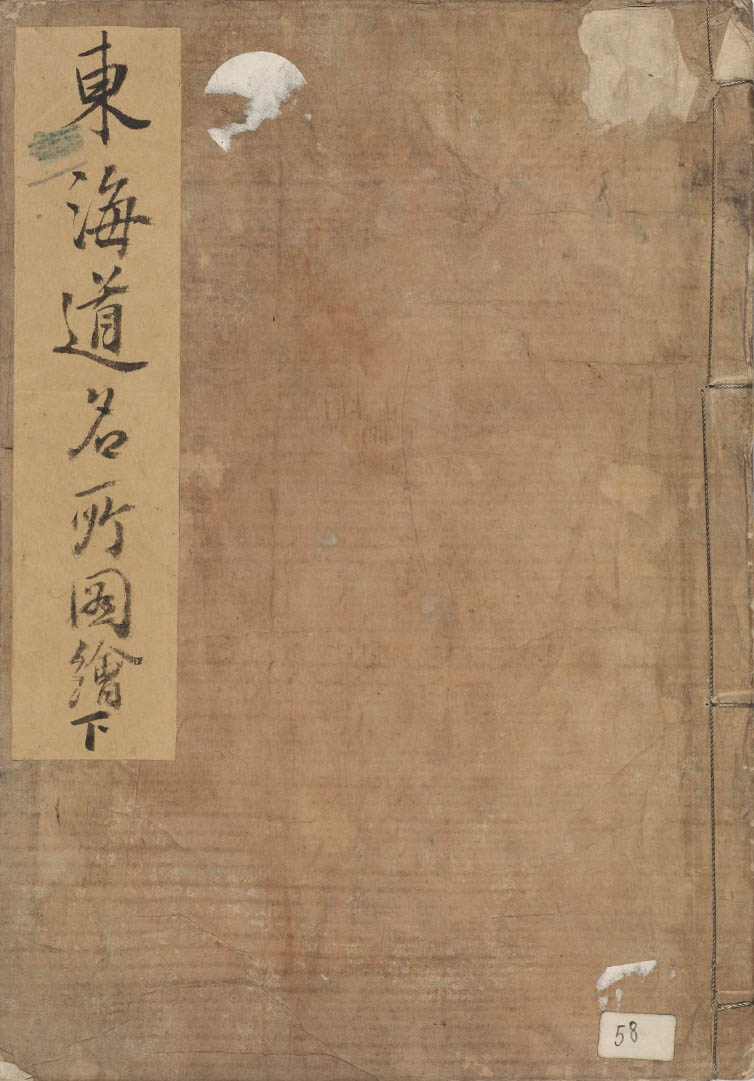 東海道名所圖繪下
58